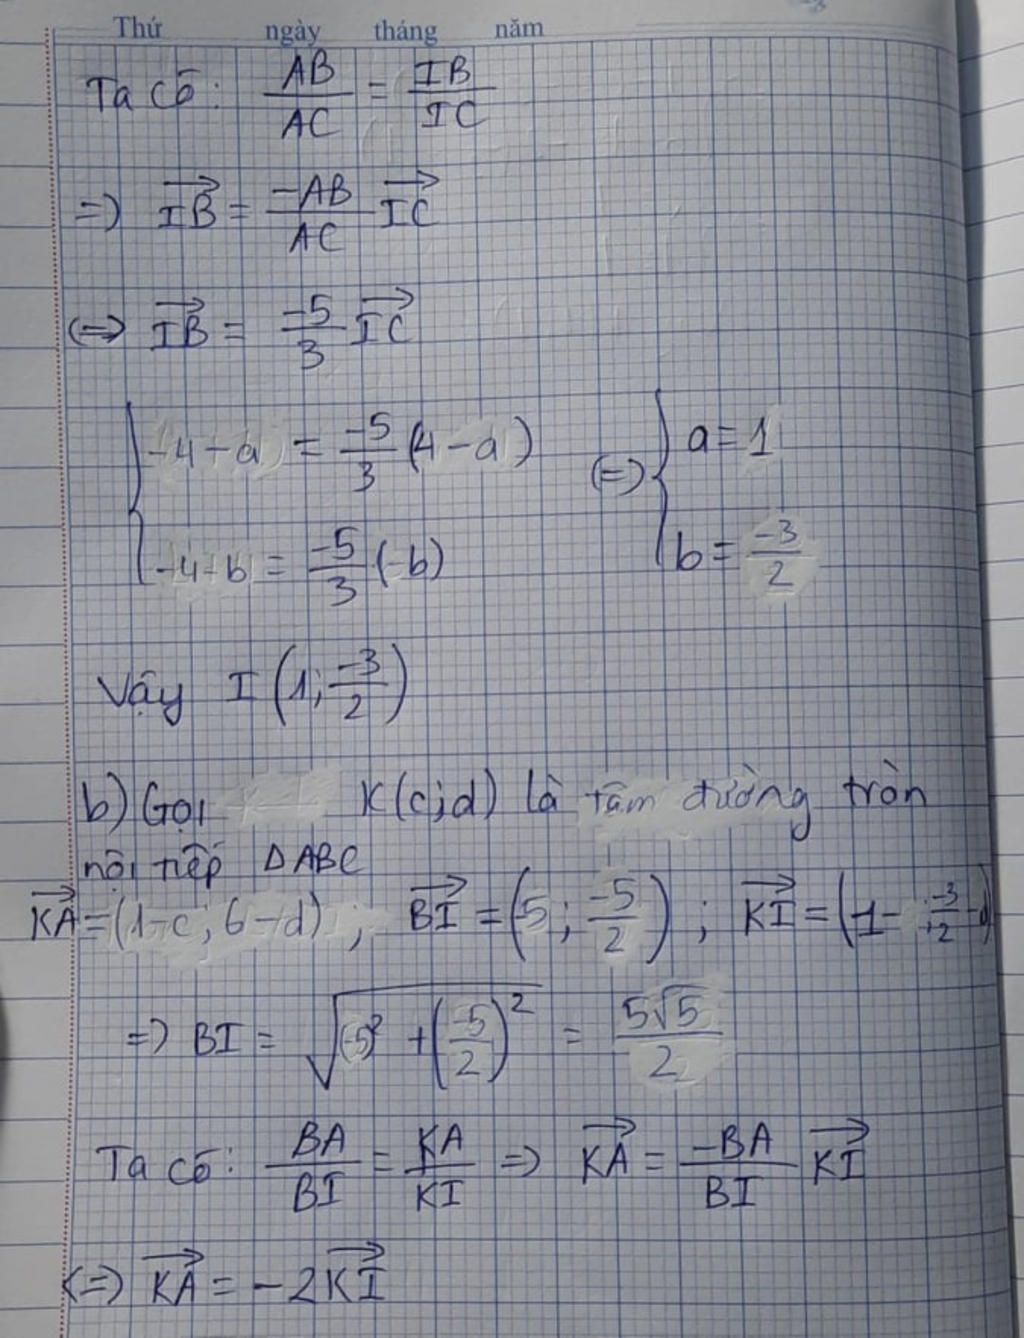 Thứ ngày tháng năm
Ta có: AB/AC = IB/IC
=) \overrightarrow{IB} = -AB/AC \overrightarrow{IC}
(=) \overrightarrow{IB} = -5/3 \overrightarrow{IC}
{ -4-a = -5/3 (4-a) (=) { a = 1
-4-b = -5/3 (-b) b = -3/2
Vậy I (1; -3/2)
b) Gọi K(c;d) là tâm đường tròn
nội tiếp ΔABC
\overrightarrow{KA} = (1-c; 6-d); \overrightarrow{BI} = (5; -5/2); \overrightarrow{KI} = (1- ; -3/2 -d)
=) BI = √((-5)² + (-5/2)²) = 5√5/2
Ta có: BA/BI = KA/KI =) \overrightarrow{KA} = -BA/BI \overrightarrow{KI}
(=) \overrightarrow{KA} = -2\overrightarrow{KI}